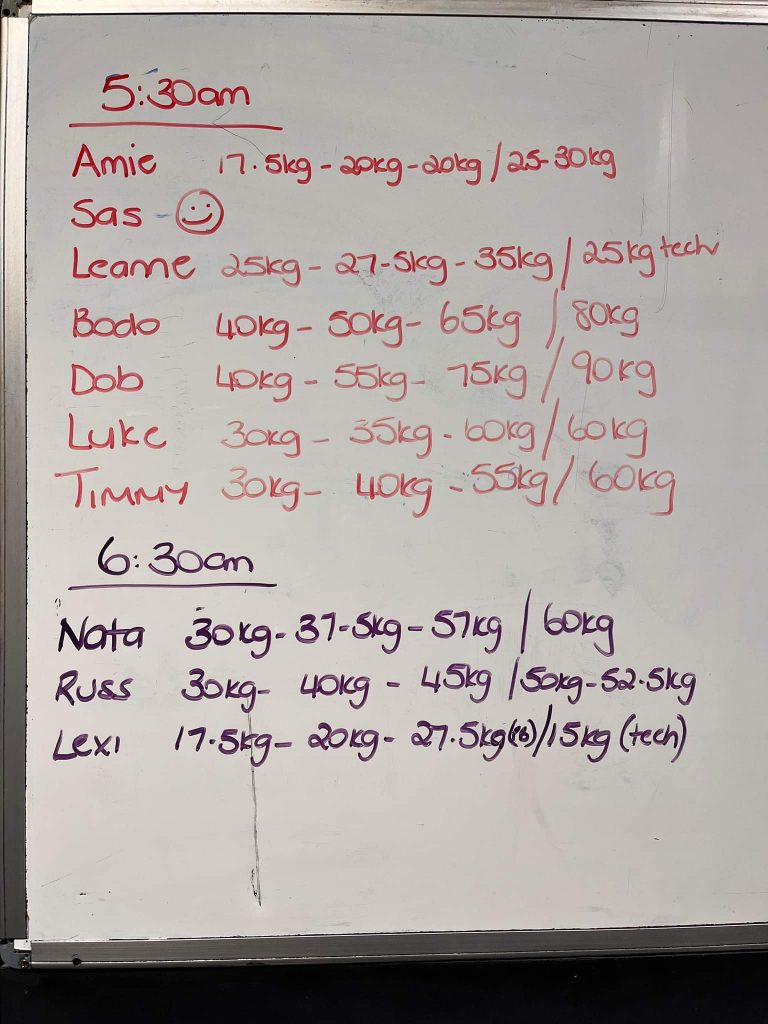 5:30am
Amie 17.5kg - 20kg - 20kg / 25-30kg
Sas - ☺
Leanne 25kg - 27.5kg - 35kg / 25kg tech
Bodo 40kg - 50kg - 65kg / 80kg
Dob 40kg - 55kg - 75kg / 90kg
Luke 30kg - 35kg - 60kg / 60kg
TIMMY 30kg - 40kg - 55kg / 60kg
6:30am
Nata 30kg - 37.5kg - 57kg / 60kg
Russ 30kg - 40kg - 45kg / 50kg - 52.5kg
Lexi 17.5kg - 20kg - 27.5kg / 15kg (tech)